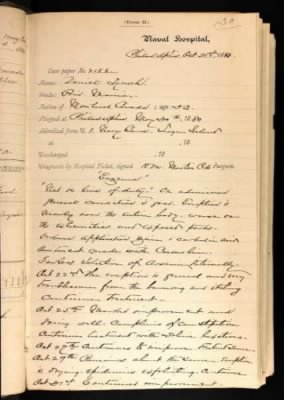 (Form 21.)
130
Naval Hospital,
Philadelphia Oct 21st, 1884
Case paper No.
Name: Daniel Lynch
Grade: Priv. Marine
Native of Montreal Canada; age 22
Passed at Philadelphia May 1880
Admitted from U. S. Navy Yard League Island
, 18
Discharged , 18
Diagnosis by Hospital Ticket, signed Surgeon.
"Eczema"
"Not in line of duty." On admission
general condition is good. Eruption is
nearly over the entire body, worse on
the extremities and exposed parts.
Ordered application
ointment
Fowler's Solution of Arsenic Internally
Oct 22nd The eruption is general and very
troublesome from the burning and itching
Continue Treatment.
Oct 25th Marked improvement and
doing well. Complains of constipation
Continue treatment with saline laxatives.
Oct 27th Continues to improve
Oct 29th Remains about the same. Eruption
is drying, epidermis exfoliating. Continue
Oct 31st Continued improvement.